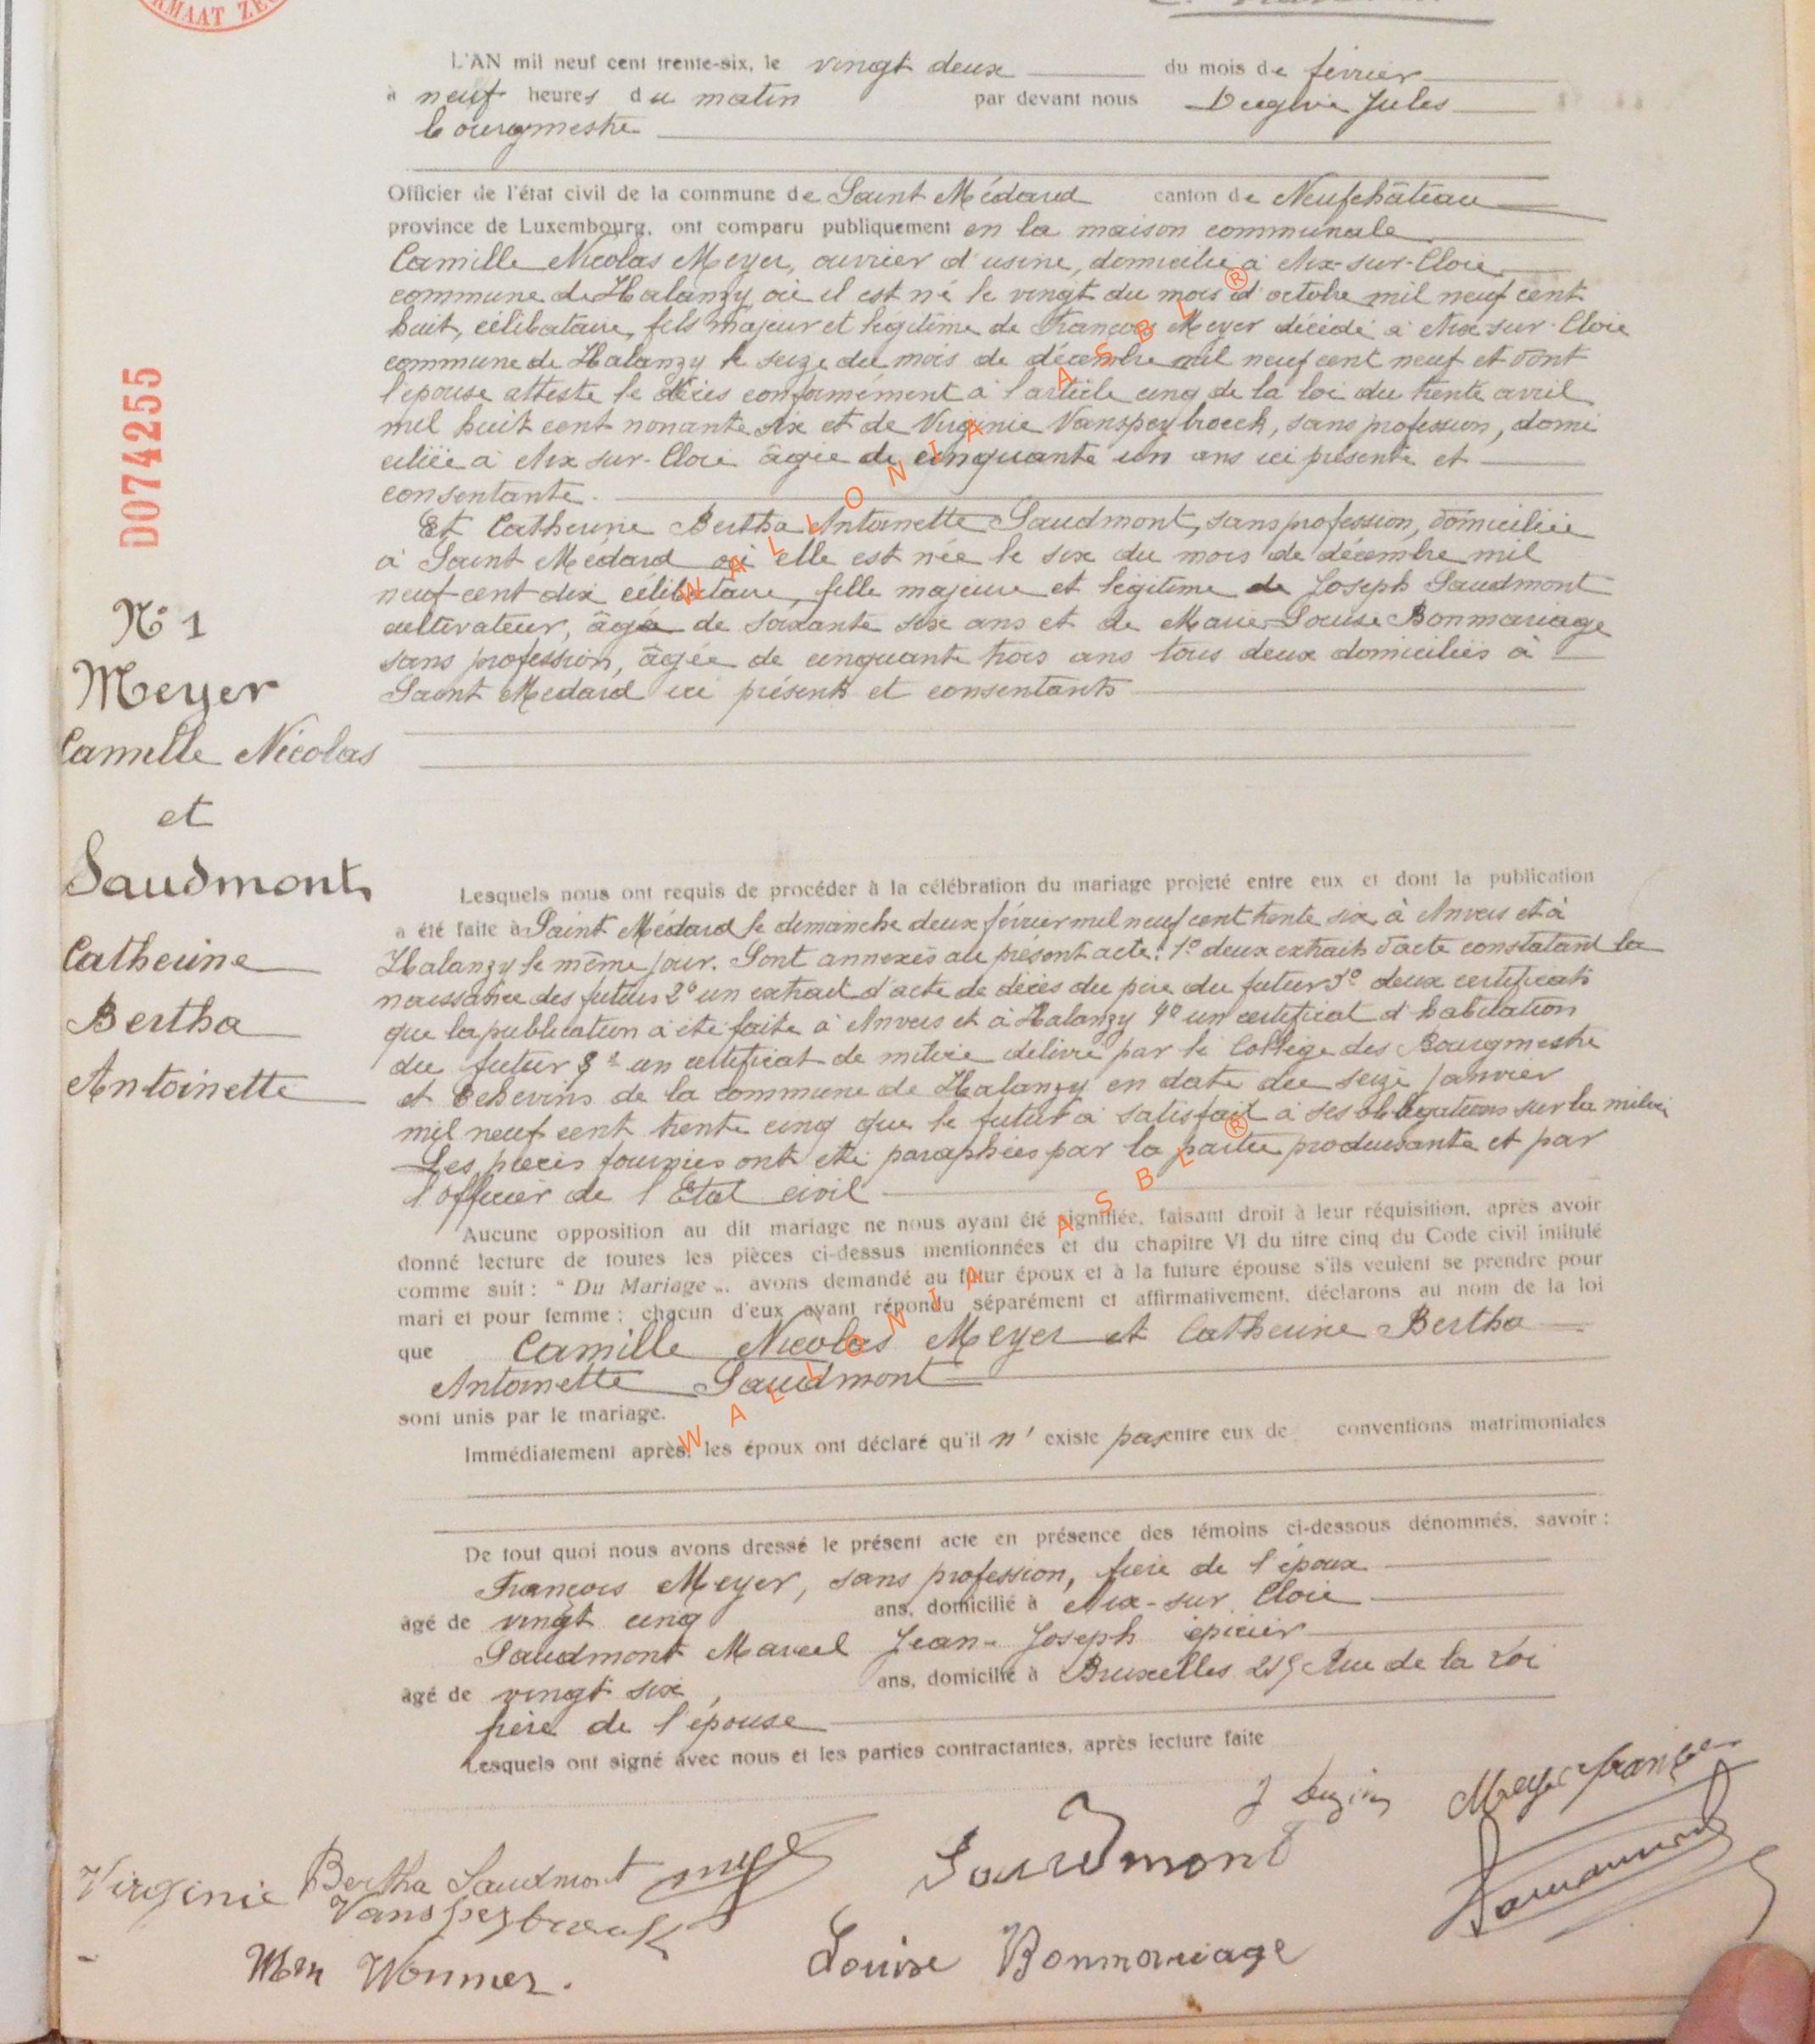 MAAT ZE
L'AN mil neuf cent trente-six, le vingt deux du mois de février
à neuf heures du matin par devant nous Jules
bourgmestre
Officier de l'état civil de la commune de Saint Médard canton de Neufchâteau
province de Luxembourg, ont comparu publiquement en la maison communale
Camille Nicolas Meyer, ouvrier d'usine, domicilié à Aix-sur-Cloie
commune de Halanzy où il est né le vingt du mois d'octobre mil neuf cent
huit, célibataire, fils majeur et légitime de François Meyer décédé à Aix sur-Cloie
commune de Halanzy le seize du mois de décembre mil neuf cent neuf et dont
l'épouse atteste le décès conformément à l'article cinq de la loi du trente avril
mil huit cent nonante six et de Virginie Vanspeybroeck, sans profession, domi
ciliée à Aix sur-Cloie âgée de cinquante un ans ici présente et
consentante.
Et Catherine Bertha Antoinette Saudmont, sans profession, domiciliée
à Saint Médard où elle est née le six du mois de décembre mil
neuf cent dix célibataire, fille majeure et légitime de Joseph Saudmont
cultivateur, âgé de soixante six ans et de Marie-Louise Bonmariage
sans profession, âgée de cinquante trois ans tous deux domiciliés à
Saint Médard ici présents et consentants
D074255
N° 1
Meyer
Camille Nicolas
et
Saudmont,
Catherine
Bertha
Antoinette
Lesquels nous ont requis de procéder à la célébration du mariage projeté entre eux et dont la publication
a été faite à Saint Médard le dimanche deux février mil neuf cent trente six à Anvers et à
Halanzy le même jour. Sont annexés au présent acte: 1° deux extraits d'acte constatant la
naissance des futurs 2° un extrait d'acte de décès du père du futur 3° deux certificats
que la publication a été faite à Anvers et à Halanzy 4° un certificat d'habitation
du futur 5° un certificat de milice délivré par le Collège des Bourgmestre
et Echevins de la commune de Halanzy en date du seize janvier
mil neuf cent trente cinq que le futur a satisfait à ses obligations sur la milice
Les pièces fournies ont été paraphées par la partie produisante et par
l'officier de l'Etat civil
Aucune opposition au dit mariage ne nous ayant été signifiée, faisant droit à leur réquisition, après avoir
donné lecture de toutes les pièces ci-dessus mentionnées et du chapitre VI du titre cinq du Code civil intitulé
comme suit : " Du Mariage „, avons demandé au futur époux et à la future épouse s'ils veulent se prendre pour
mari et pour femme ; chacun d'eux ayant répondu séparément et affirmativement, déclarons au nom de la loi
que Camille Nicolas Meyer et Catherine Bertha
Antoinette Saudmont
sont unis par le mariage.
Immédiatement après, les époux ont déclaré qu'il n' existe pas entre eux de conventions matrimoniales
De tout quoi nous avons dressé le présent acte en présence des témoins ci-dessous dénommés, savoir :
François Meyer, sans profession, frère de l'époux
âgé de vingt cinq ans, domicilié à Aix-sur Cloie
Saudmont Marcel Jean-Joseph épicier
âgé de vingt six, ans, domicilié à Bruxelles 215 Rue de la Loi
frère de l'épouse
Lesquels ont signé avec nous et les parties contractantes, après lecture faite
Meyer françois
Saudmont
Bertha Saudmont
Virginie Vanspeybroeck
Saudmont
Louise Bonmariage
WALLONIA ASBL ®
WALLONIA ASBL ®